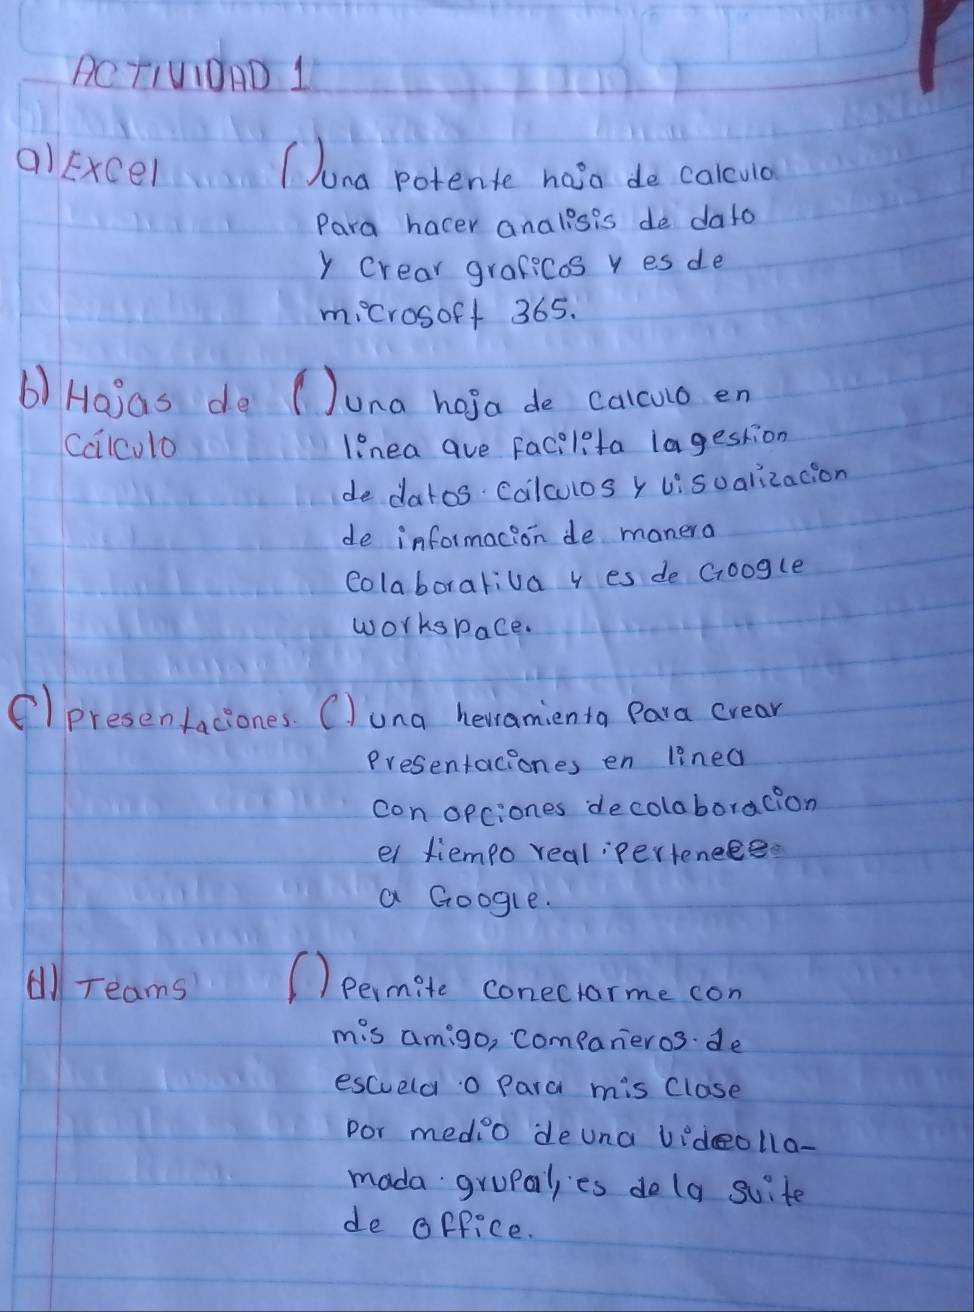 ACTIVIDAD 1
a) Excel ( ) una potente hoja de calculo
Para hacer analisis de dato
y crear graficos y es de
microsoft 365.
b) Hojas de ( ) una hoja de calculo en
Cálculo linea que facilita la gestion
de datos. Cálculos y visualizacion
de información de manera
colaborativa y es de Google
workspace.
c) Presentaciones. ( ) una herramienta Para crear
Presentaciones en linea
con opciones de colaboracion
el tiempo real. Pertenece
a Google.
d) Teams ( ) Permite conectarme con
mis amigo, compañeros de
escuela o Para mis clase
por medio de una videolla-
mada grupal, es de la suite
de office.